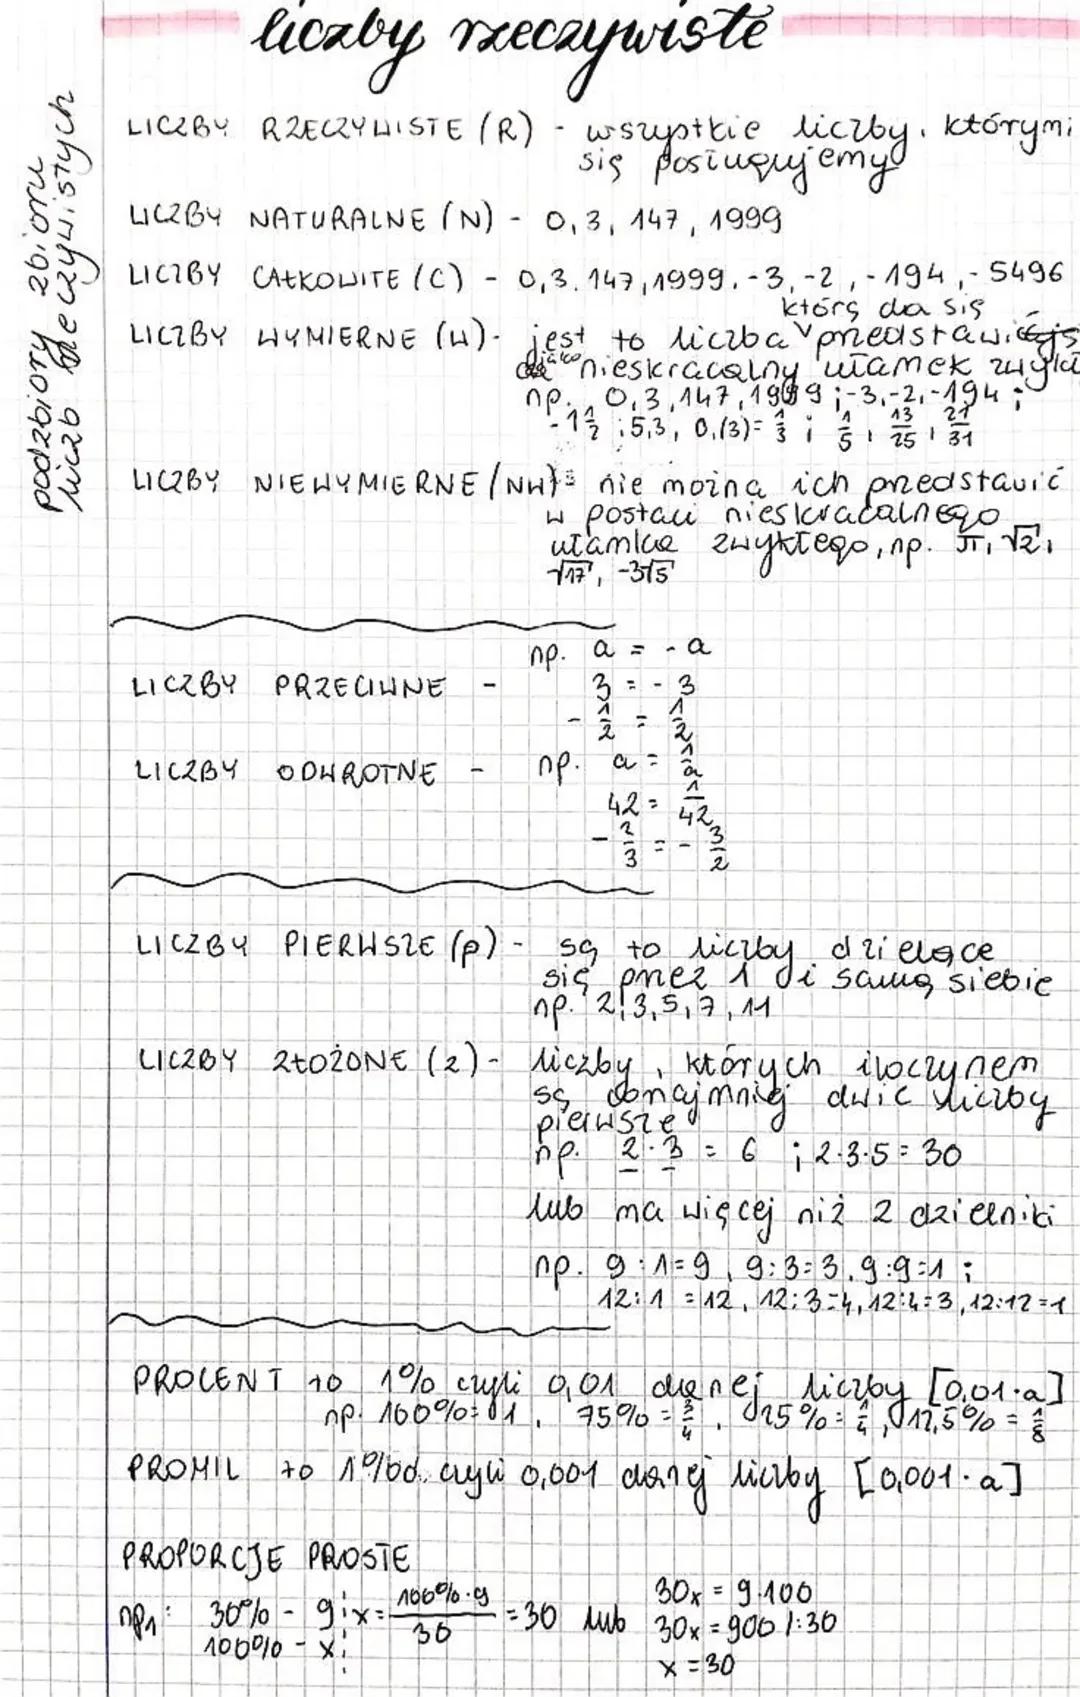 liczby rzeczywiste
podzbiory zbioru
liczb rzeczywistych
LICZBY RZECZYWISTE (R) - wszystkie liczby, którymi
się posługujemy
LICZBY NATURALNE (N) - 0, 3, 147, 1999
LICZBY CAŁKOWITE (C) - 0, 3, 147, 1999, -3, -2, -194, -5496
którą da się
LICZBY WYMIERNE (W) - jest to liczba przedstawić
jako nieskracalny ułamek zwykł
np. 0, 3, 147, 1999 ; -3, -2, -194 ;
-1 1/2 ; 5,3, 0,(3) = 1/3 ; 1/5, 13/25, 21/31
LICZBY NIEWYMIERNE (NW) = nie można ich przedstawić
w postaci nieskracalnego
ułamka zwykłego, np. π, √2,
√17, -3√5
np. a = - a
LICZBY PRZECIWNE - 3 = - 3
- 1/2 = 1/2
LICZBY ODWROTNE - np. a = 1/a
42 = 1/42
- 2/3 = - 3/2
LICZBY PIERWSZE (p) - są to liczby dzielące
się przez 1 i samą siebie
np. 2, 3, 5, 7, 11
LICZBY ZŁOŻONE (z) - liczby, których iloczynem
są conajmniej dwie liczby
pierwsze
np. 2 · 3 = 6 ; 2·3·5 = 30
lub ma więcej niż 2 dzielniki
np. 9 : 1 = 9, 9 : 3 = 3, 9 : 9 = 1 ;
12 : 1 = 12, 12 : 3 = 4, 12 : 4 = 3, 12 : 12 = 1
PROCENT to 1% czyli 0,01 danej liczby [0,01·a]
np. 100% = 1, 75% = 3/4, 25% = 1/4, 12,5% = 1/8
PROMIL to 1‰ czyli 0,001 danej liczby [0,001·a]
PROPORCJE PROSTE
np1: 30% - 9 ; x = 100%·9/30 = 30 lub 30x = 9·100
100% - x ; 30x = 900 /:30
x = 30